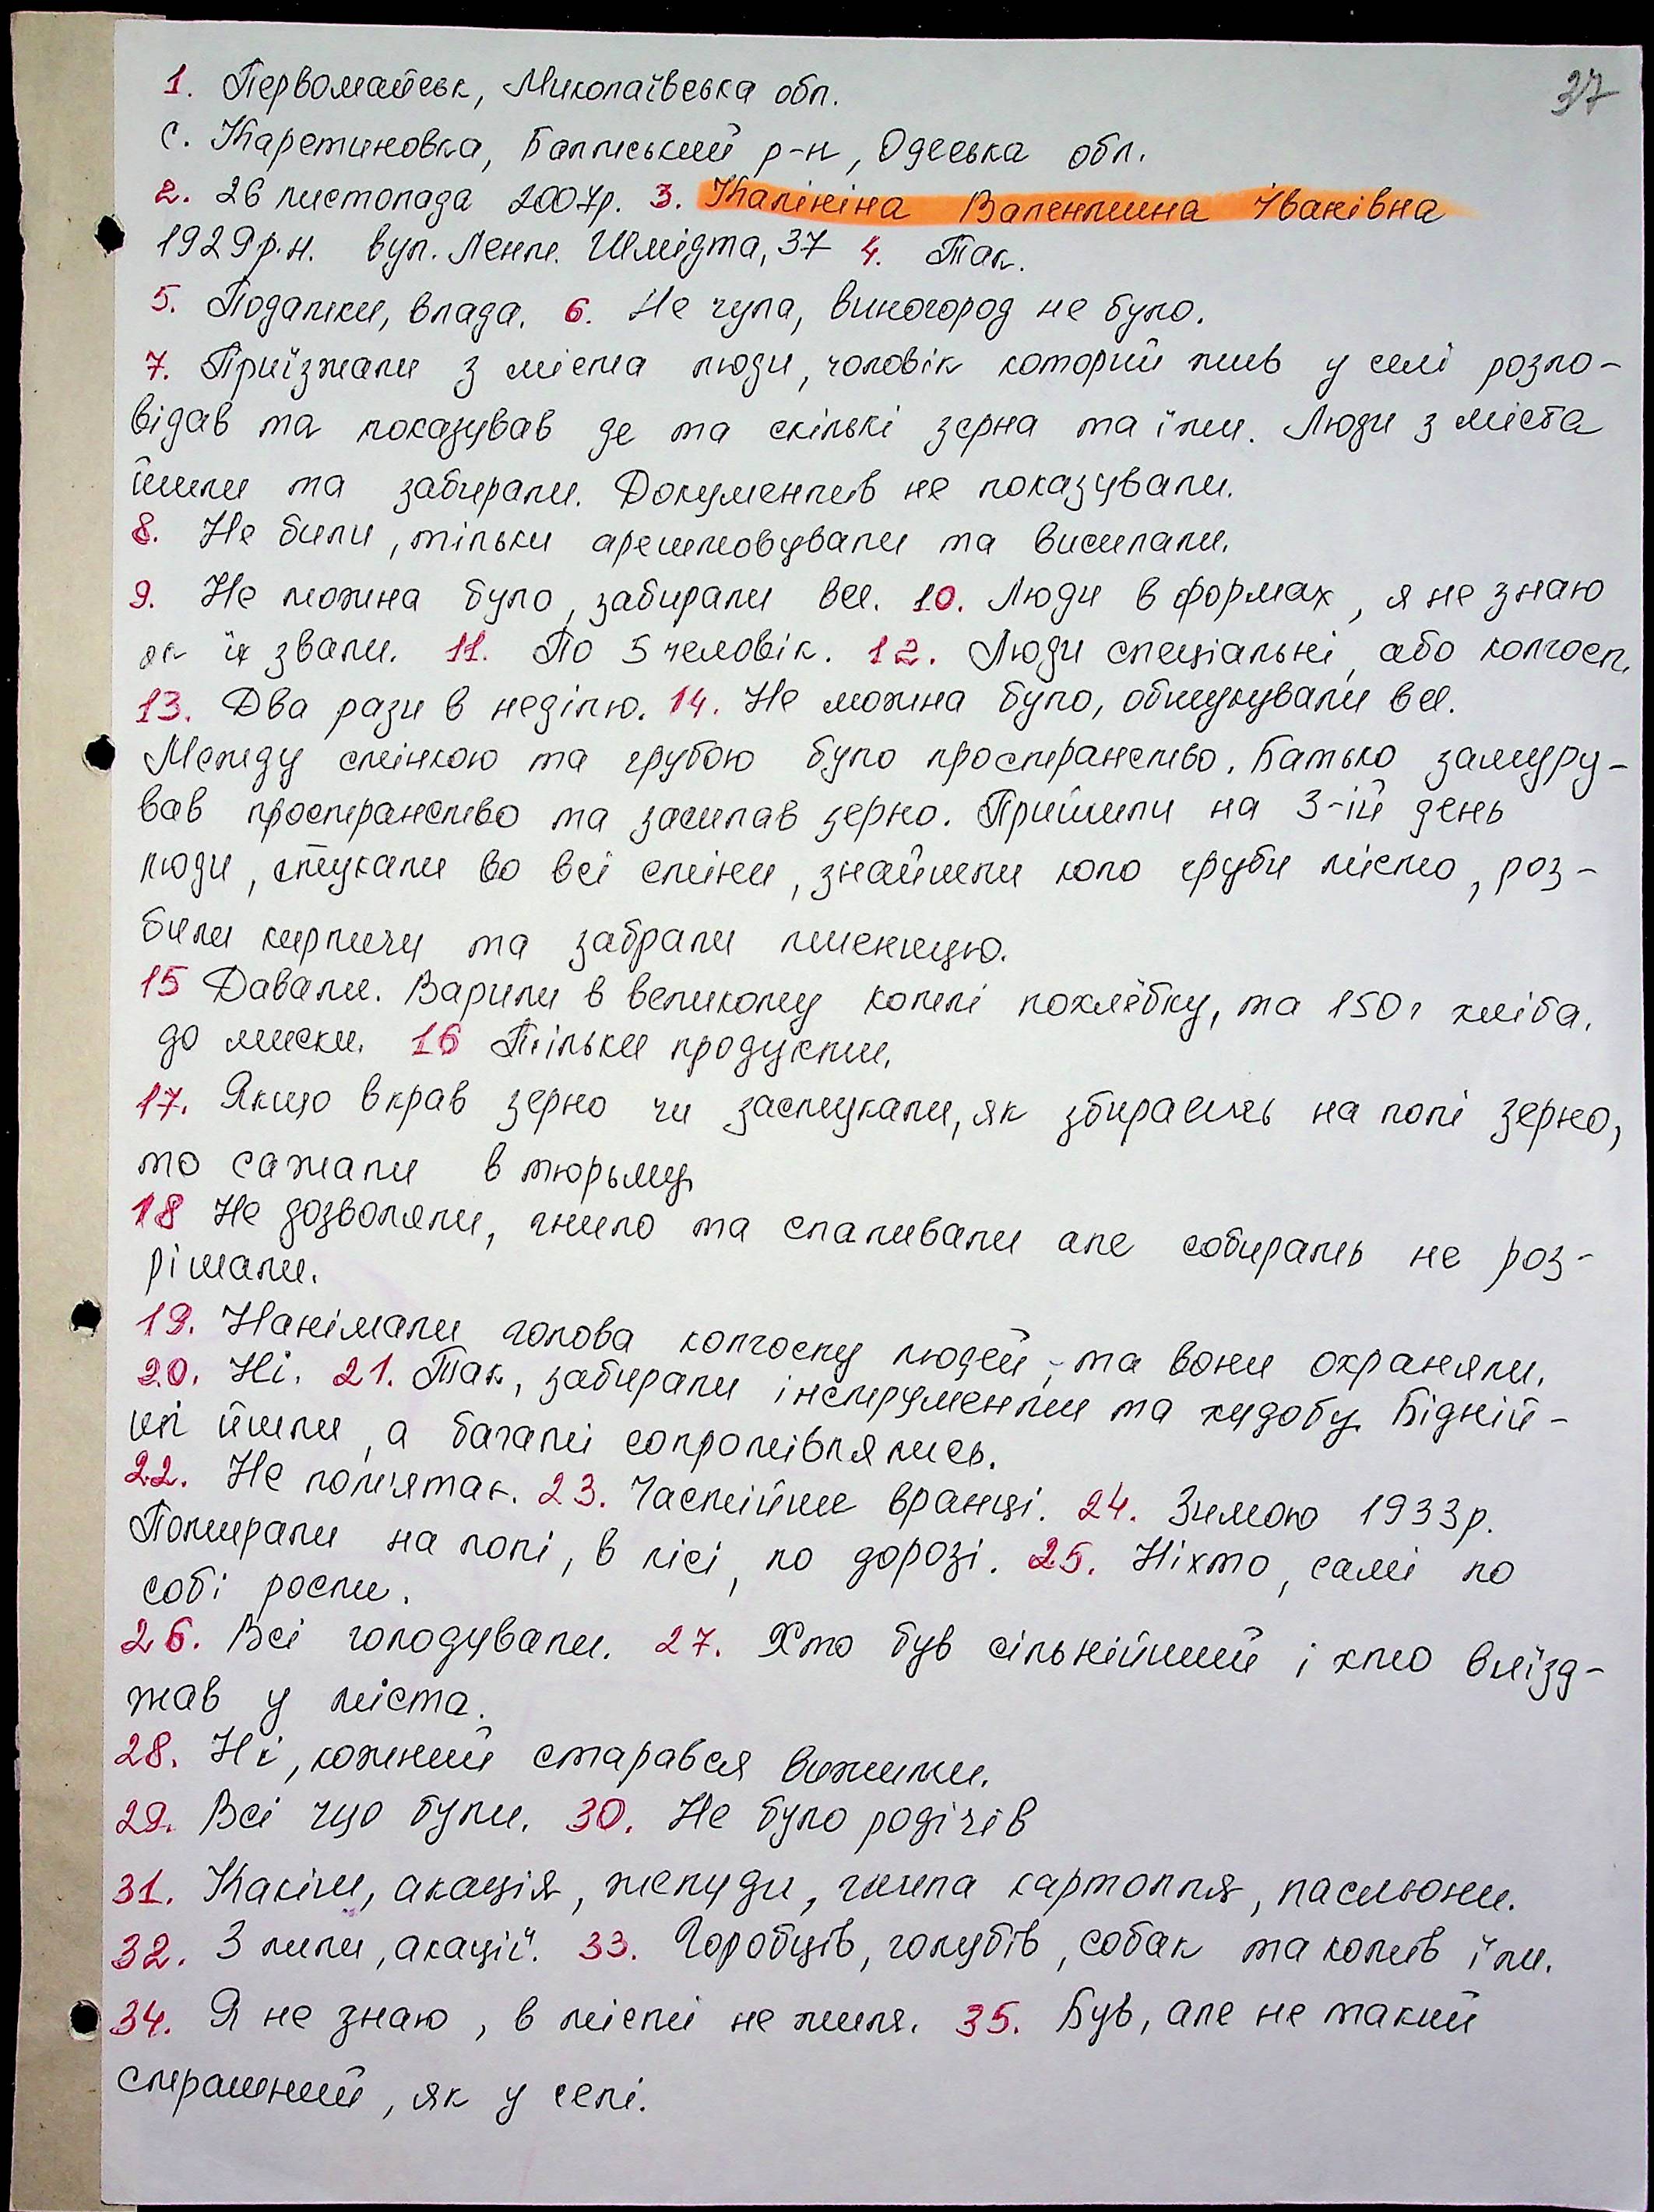 37
1. Первомайськ, Миколаївська обл.
с. Каретиновка, Балтський р-н, Одеська обл.
2. 26 листопада 2007р. 3. Калініна Валентина Іванівна
1929р.н. вул. Лент. Шмідта, 37 4. Так.
5. Податки, влада. 6. Не чула, виногород не було.
7. Приїзжали з міста люди, чоловік которий жив у селі розпо-
відав та показував де та скількі зерна та їжи. Люди з міста
йшли та забирали. Документів не показували.
8. Не били, тільки арештовували та висилали.
9. Не можна було, забирали все. 10. Люди в формах, я не знаю
як їх звали. 11. По 5 человік. 12. Люди спеціальні, або колгосп.
13. Два рази в неділю. 14. Не можна було, обшукували все.
Между стінкою та грубою було пространство. Батько замуру-
вав пространство та засипав зерно. Прийшли на 3-ій день
люди, стукали во всі стіни, знайшли коло груби місто, роз-
били кирпичи та забрали пшеницю.
15 Давали. Варили в великому котлі похлёбку, та 150г хліба.
до миски. 16 Тільки продукти.
17. Якщо вкрав зерно чи застукали, як збираешь на полі зерно,
то сажали в тюрьму.
18 Не дозволяли, гнило та спаливали але собирать не роз-
рішали.
19. Нанімали голова колгоспу людей, та вони охраняли.
20. Ні. 21. Так, забирали інструменти та худобу. Бідній-
ші йшли, а багаті сопротівлялись.
22. Не пам'ятаю. 23. Частійше вранці. 24. Зимою 1933р.
Помирали на полі, в лісі, по дорозі. 25. Ніхто, самі по
собі росли.
26. Всі голодували. 27. Хто був сільнійший і хто виїзд-
жав у міста.
28. Ні, кожний старався вижити.
29. Всі що були. 30. Не було родічів
31. Качіш, акація, желуди, гнила картопля, пасльони.
32. З липи, акації. 33. Горобців, голубів, собак та котів їли.
34. Я не знаю, в місті не жила. 35. Був, але не такий
страшний, як у селі.